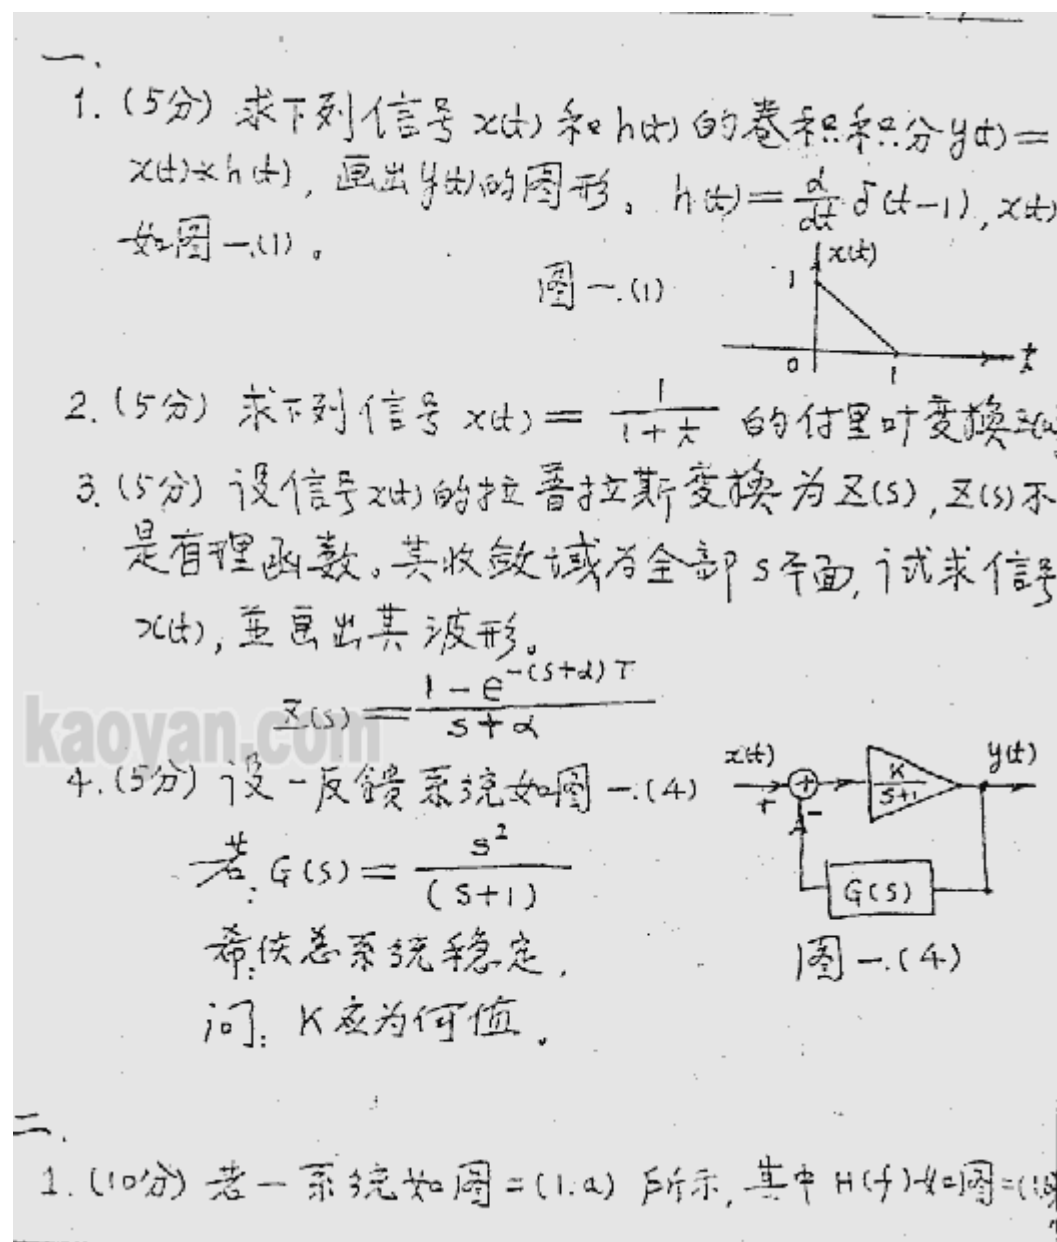 一、
1. (5分) 求下列信号 x(t) 和 h(t) 的卷积积分 y(t) =
x(t)*h(t), 画出y(t)的图形。h(t) = d/dt δ(t-1), x(t)
如图一.(1)。
x(t)
1
图一.(1)
0 1 t
2. (5分) 求下列信号 x(t) = 1/(1+t) 的付里叶变换
3. (5分) 设信号x(t)的拉普拉斯变换为X(s), X(s)不
是有理函数。其收敛域为全部s平面, 试求信号
x(t), 並画出其波形。
X(s) = (1-e^{-(s+α)T})/(s+α)
kaoyan.com
4. (5分) 设一反馈系统如图一.(4)
x(t) + + K/(s+1) y(t)
-
若: G(s) = s²/(s+1)
G(s)
希使总系统稳定,
图一.(4)
问: K应为何值。
二、
1. (10分) 若一系统如图二(1.a) 所示, 其中 H(f)如图二(1.